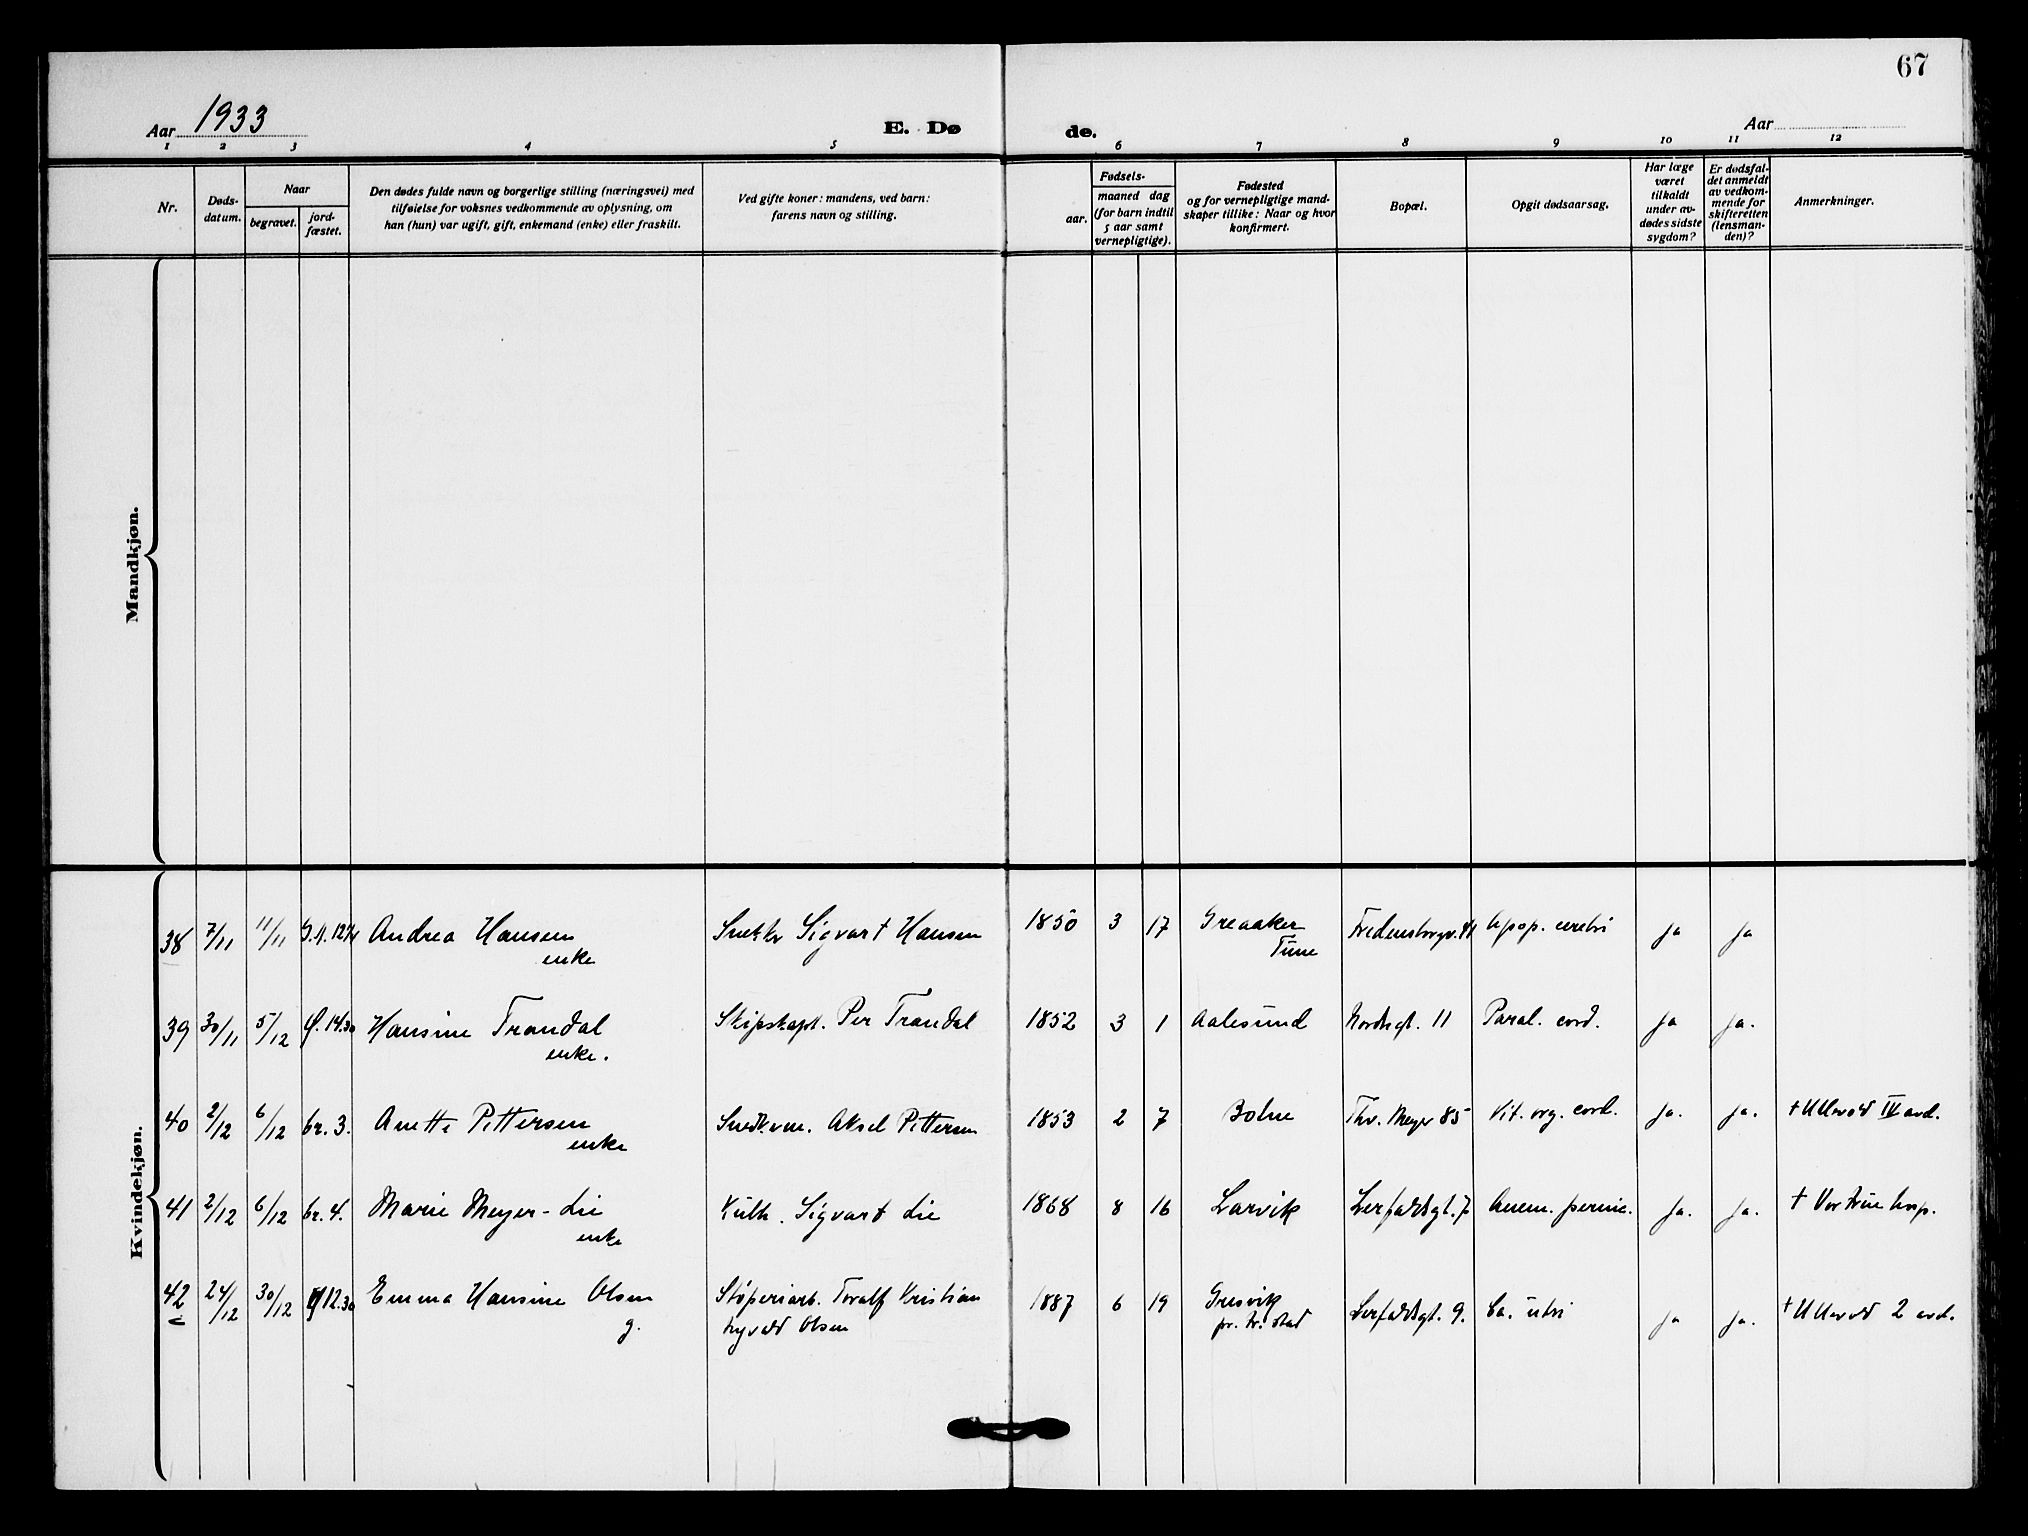 67
Aar 1933
E. Dø
de.
Aar
1 2 3 4 5 6 7 8 9 10 11 12
Nr.
Døds-
datum.
Naar
begravet.
jord-
fæstet.
Den dødes fulde navn og borgerlige stilling (næringsvei) med
tilføielse for voksnes vedkommende av oplysning, om
han (hun) var ugift, gift, enkemand (enke) eller fraskilt.
Ved gifte koner: mandens, ved barn:
farens navn og stilling.
Fødsels-
aar.
maaned dag
(for barn indtil
5 aar samt
vernepligtige).
Fødested
og for vernepligtige mand-
skaper tillike: Naar og hvor
konfirmert.
Bopæl.
Opgit dødsaarsag.
Har læge
været
tilkaldt
under av-
dødes sidste
sygdom?
Er dødsfal-
det anmeldt
av vedkom-
mende for
skifteretten
(lensman-
den)?
Anmerkninger.
Mandkjøn.
Kvindekjøn.
38 7/11 11/11 Andrea Hansen Snekker Sigvart Hansen 1850 3 17 Greaaker Fredensborgv. 41 Apop. cerebri ja ja
enke Tune
39 30/11 5/12 14.30 Hansine Trandal Skipskapt. Per Trandal 1852 3 1 Aalesund Nordregt. 11 Paral. cord. ja ja.
enke.
40 2/12 6/12 br. 3. Anette Pettersen Snedk.em. Aksel Pettersen 1853 2 7 Thv. Meyer 85 Vit. org. cord. ja. ja. + Ullevål IV avd.
enke
41 2/12 6/12 br. 4. Marie Meyer-Lie Sigvart Lie 1868 8 16 Larvik Lerfaldsgt. 7 Anem. pernic. ja. ja. + Vor Frue hosp.
enke
42 24/12 30/12 12.30 Emma Hansine Olsen Støperiarb. Toralf Kristian 1887 6 19 Gresvik Lerfaldsgt. 9. Ca. uteri ja ja. + Ullevål 2 avd.
c g. Nyvold Olsen pr. Fr.stad